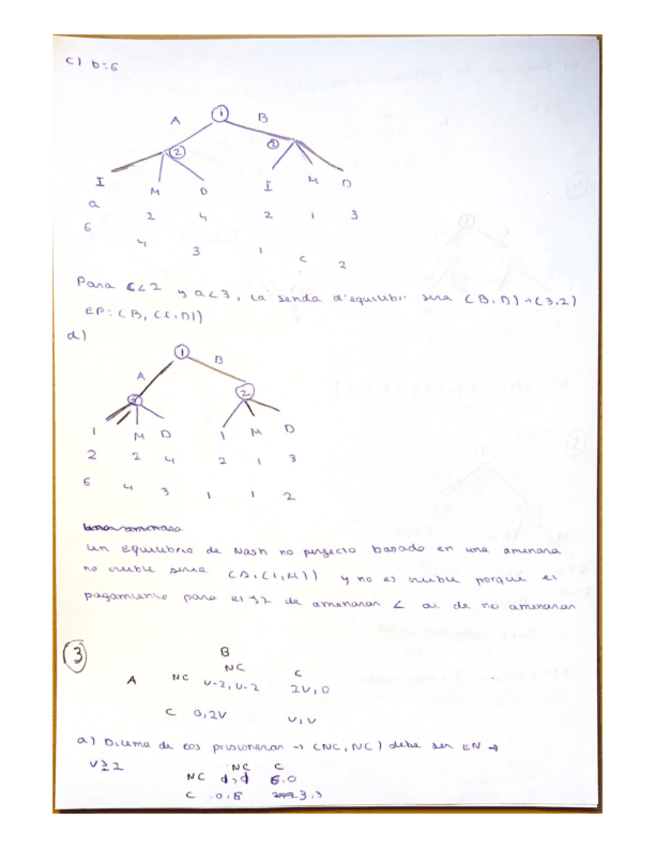 c) b=6
1
A B
2 2
I M D I M D
a 2 4 2 1 3
6 4 3 1 c 2
Para c<2 y a<3, la senda d'equilibri sera (B,D)→(3,2)
EP: (B, (I,D))
d)
1
A B
2 2
I M D I M D
2 2 4 2 1 3
6 4 3 1 1 2
Un equilibrio de Nash no perfecto basado en una amenaza
no creible seria (A,(I,M)) y no es creible porque el
pagamiento para el J2 de amenazar < al de no amenazar
3
B
NC C
A NC V-2, V-2 2V,0
C 0,2V V,V
a) Dilema de los prisioneros → (NC, NC) debe ser EN →
V≥2
NC C
NC 1,1 6,0
C 0,6 3,3